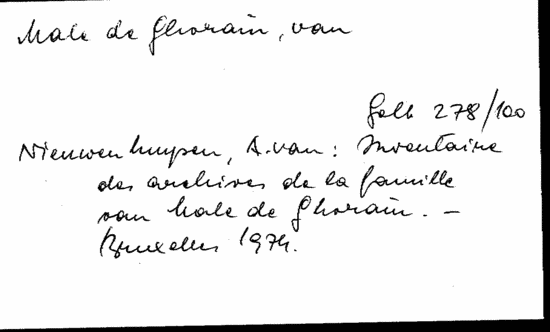 Male de Ghorain, van
Gelb 278/100
Nieuwenhuysen, A. van: Inventaire
des archives de la famille
van Male de Ghorain. –
Bruxelles 1974.